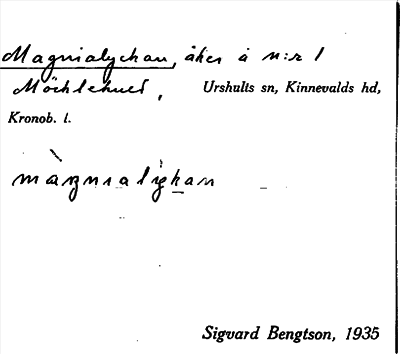 Magnialyckan, åker å n:r 1
Möcklehult, Urshults sn, Kinnevalds hd,
Kronob. l.
Sigvard Bengtson, 1935